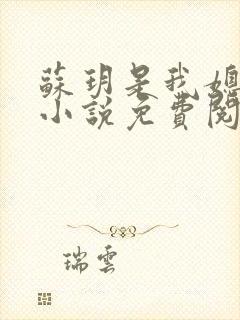 蘇玥是我媳
小說免費閱
瑞雲